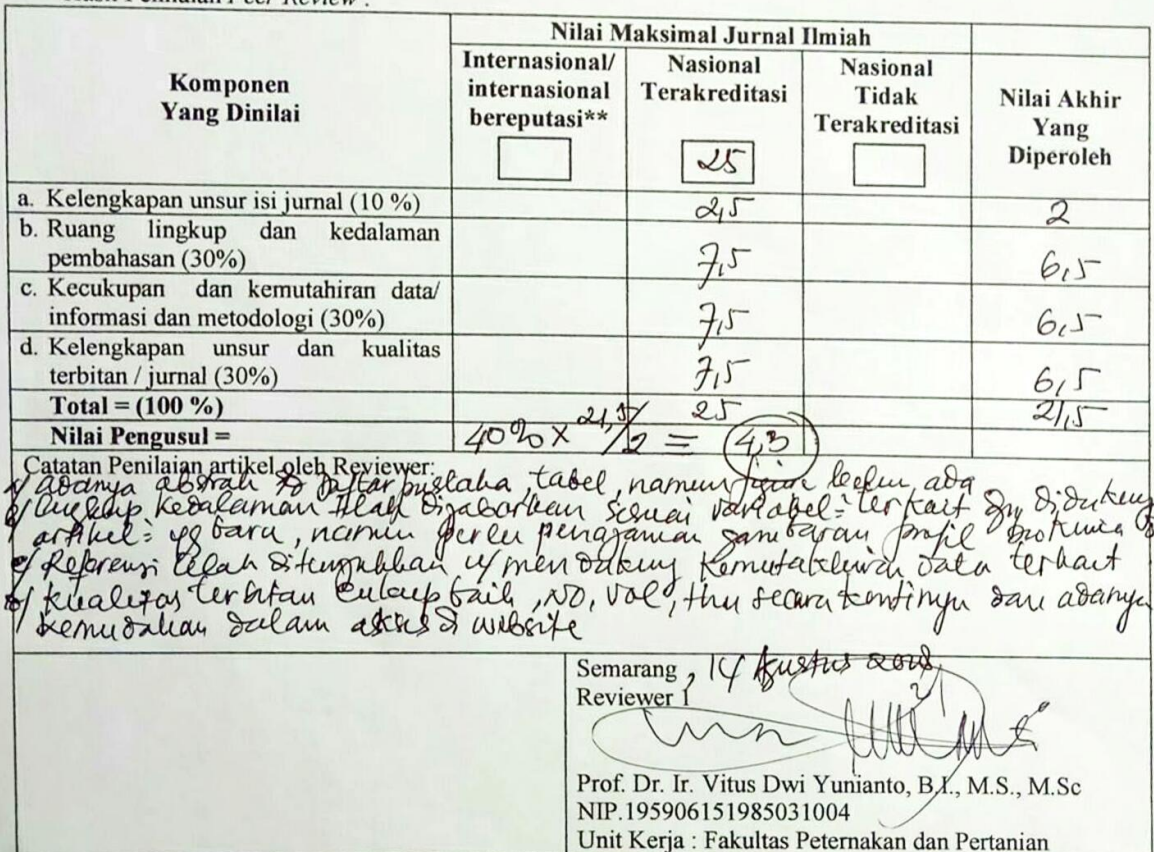 Hasil Penilaian Peer Review :
Komponen
Yang Dinilai
Nilai Maksimal Jurnal Ilmiah
Internasional/
internasional
bereputasi**
Nasional
Terakreditasi
25
Nasional
Tidak
Terakreditasi
Nilai Akhir
Yang
Diperoleh
a. Kelengkapan unsur isi jurnal (10 %) 2,5 2
b. Ruang lingkup dan kedalaman
pembahasan (30%) 7,5 6,5
c. Kecukupan dan kemutahiran data/
informasi dan metodologi (30%) 7,5 6,5
d. Kelengkapan unsur dan kualitas
terbitan / jurnal (30%) 7,5 6,5
Total = (100 %) 25 21,5
Nilai Pengusul = 40% x 21,5/2 = 4,3
Catatan Penilaian artikel oleh Reviewer:
adanya daftar pustaka, tabel, namun ada
kedalaman telah dijabarkan sesuai variabel = terkait
artikel = yg baru, namun perlu penajaman gambaran profil
Referensi telah u/ mendukung data terkait
kualitas terbitan cukup baik, no, vol, thn secara kontinyu dan adanya
kemudahan dalam akses di website
Semarang, 14 Agustus 2018
Reviewer 1
Prof. Dr. Ir. Vitus Dwi Yunianto, B.I., M.S., M.Sc
NIP.195906151985031004
Unit Kerja : Fakultas Peternakan dan Pertanian